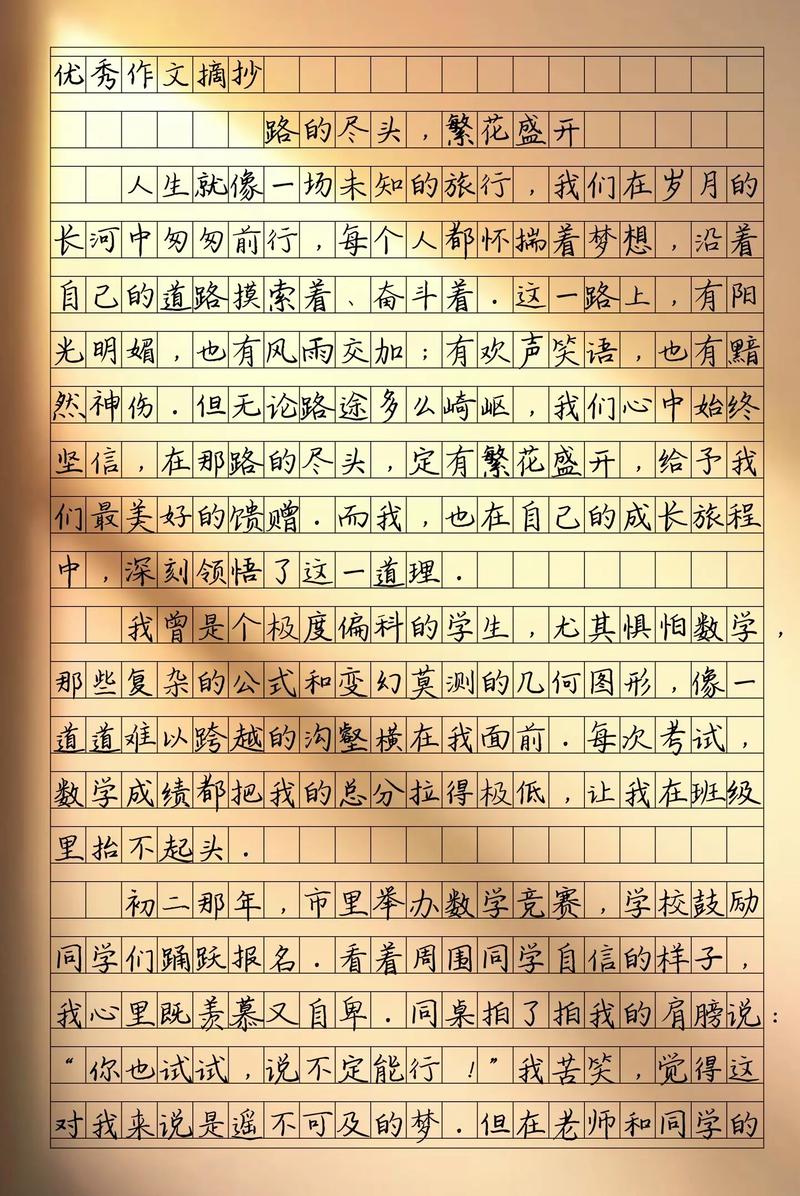 优秀作文摘抄
路的尽头，繁花盛开
人生就像一场未知的旅行，我们在岁月的
长河中匆匆前行，每个人都怀揣着梦想，沿着
自己的道路摸索着、奋斗着．这一路上，有阳
光明媚，也有风雨交加；有欢声笑语，也有黯
然神伤．但无论路途多么崎岖，我们心中始终
坚信，在那路的尽头，定有繁花盛开，给予我
们最美好的馈赠．而我，也在自己的成长旅程
中，深刻领悟了这一道理．
我曾是个极度偏科的学生，尤其惧怕数学，
那些复杂的公式和变幻莫测的几何图形，像一
道道难以跨越的沟壑横在我面前．每次考试，
数学成绩都把我的总分拉得极低，让我在班级
里抬不起头．
初二那年，市里举办数学竞赛，学校鼓励
同学们踊跃报名．看着周围同学自信的样子，
我心里既羡慕又自卑．同桌拍了拍我的肩膀说：
“你也试试，说不定能行！”我苦笑，觉得这
对我来说是遥不可及的梦．但在老师和同学的